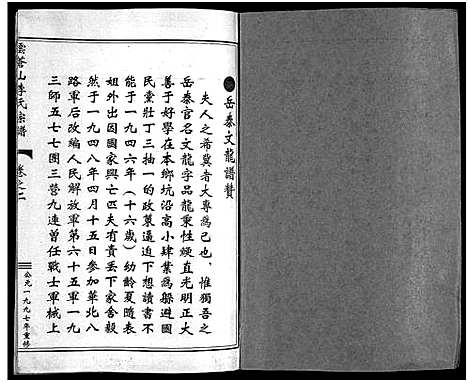 岳泰文龍譜贊
夫人之希冀者大專為己也惟獨吾之
岳泰官名文龍字品龍秉性煗直光明正大
善于好學在本鄉坑沿高小肆業為躲避國
民黨壯丁三抽一的政策逼迫下想讀書不
能于一九四六年(十六歲)幼齡夏隨表
姐外出因國家興亡匹夫有責丟下家舍毅
然于一九四八年四月十五日參加華北八
路軍后改編人民解放軍第六十五軍一九
三師五七七團三營九連曾任戰士軍械上
雲蒼山李氏宗譜 卷之二 公元一九九七年重修